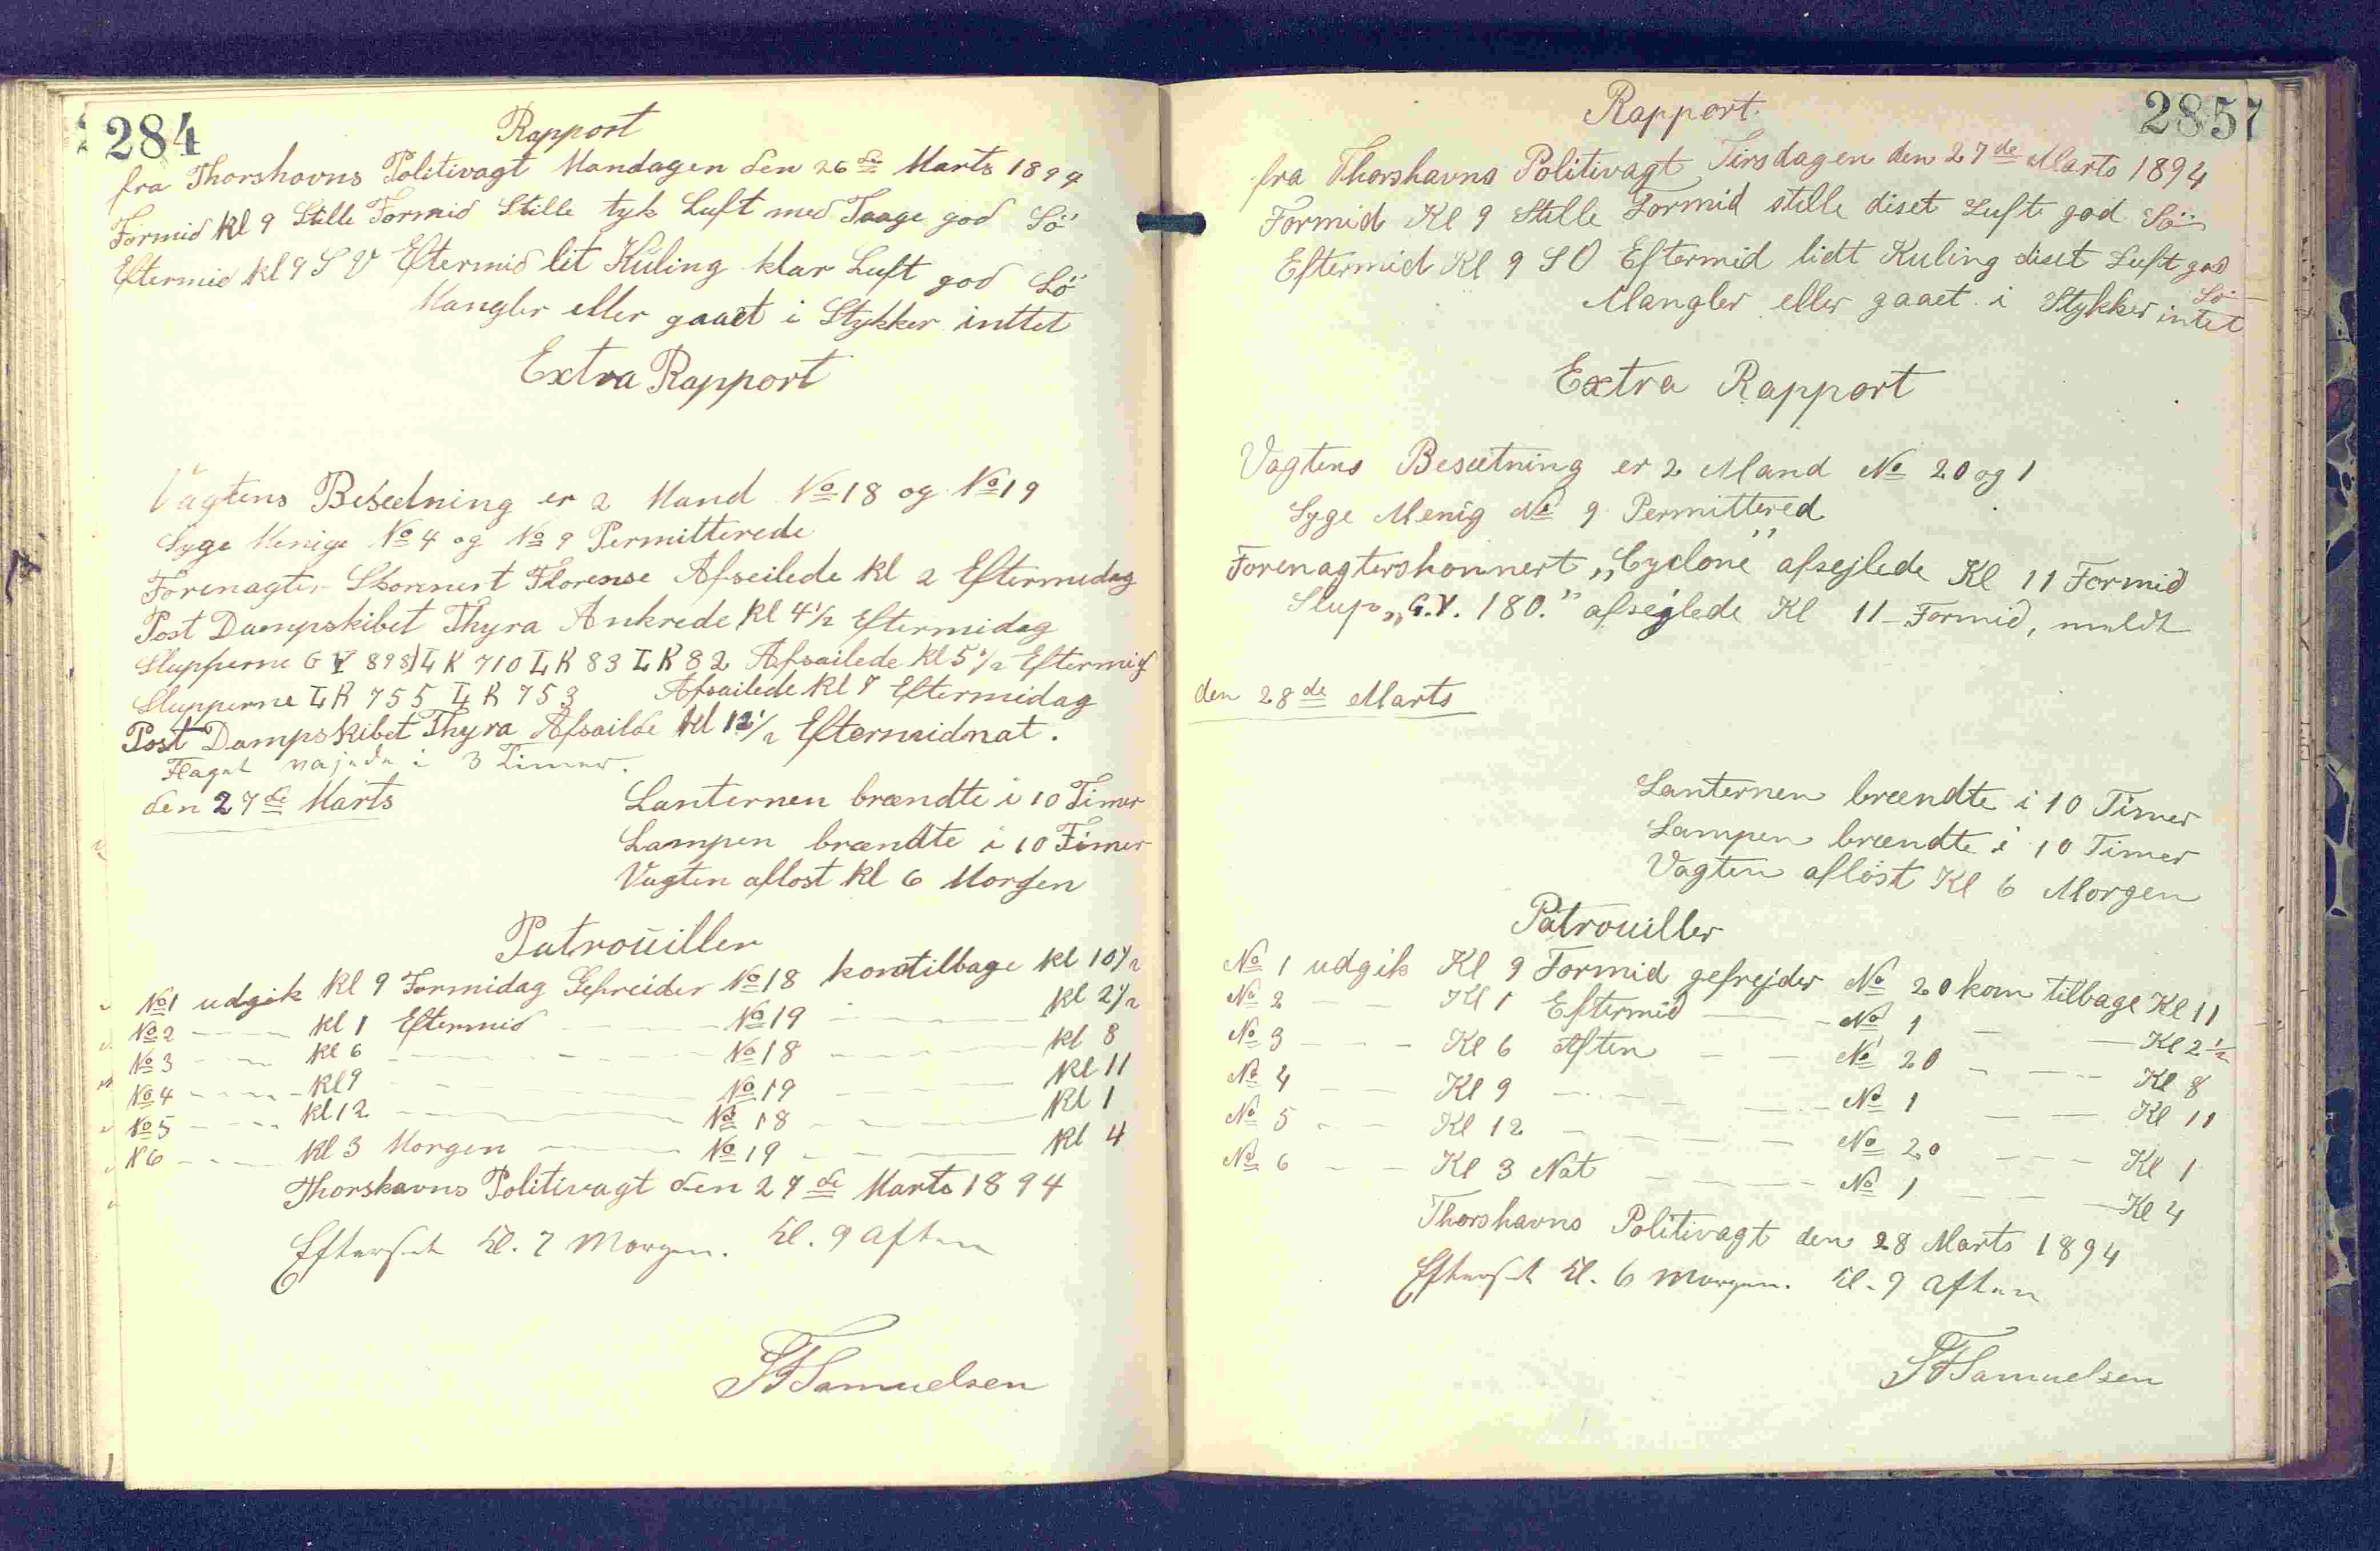 284
Rapport
fra Thorshavns Politivagt Mandagen den 26de Marts 1894
Formid Kl 9 Stille Formid Stille tyk Luft med Taage god Sö
Eftermid Kl 9 S V Eftermid lit Kuling klar Luft god Sö
Mangler eller gaaet i Stykker inttet
Extra Rapport
Vagtens Besætning er 2 Mand No 18 og No 19
Syge Menige No 4 og No 9 Permitterede
Forenagter Skonnert Florense Afseilede Kl 2 Eftermidag
Post Dampskibet Thyra Ankrede Kl 4 1/2 Eftermidag
Slupperne G V 898 L K 710 L K 83 L K 82 Afsailede Kl 5 1/2 Eftermid
Slupperne L K 755 L K 753 Afsailede Kl 7 Eftermidag
Post Dampskibet Thyra Afsailde Kl 12 1/2 Eftermidnat.
Flaget vajede i 3 Timer.
den 27de Marts
Lanternen brændte i 10 Timer
Lampen brændte i 10 Timer
Vagten aflost Kl 6 Morgen
Patrouiller
No 1 udgik Kl 9 Formidag Gefreider No 18 kom tilbage Kl 10 1/2
No 2 — Kl 1 Eftermid — No 19 — Kl 2 1/2
No 3 — Kl 6 — No 18 — Kl 8
No 4 — Kl 9 — No 19 — Kl 11
No 5 — Kl 12 — No 18 — Kl 1
N 6 — Kl 3 Morgen — No 19 — Kl 4
Thorshavns Politivagt den 27de Marts 1894
Efterset Kl. 7 Morgen. Kl. 9 Aften
Samuelsen
285
Rapport.
fra Thorshavns Politivagt Tirsdagen den 27de Marts 1894
Formid Kl 9 Stille Formid stille diset Luft god Sö
Eftermid Kl 9 S O Eftermid lidt Kuling diset Luft god Sö
Mangler eller gaaet i Stykker intet
Extra Rapport
Vagtens Besætning er 2 Mand No 20 og 1
Syge Menig No 9 Permittered
Forenagterskonnert „Cyclone" afsejlede Kl 11 Formid
Slup „G.V. 180." afsejlede Kl 11 Formid,
den 28de Marts
Lanternen brændte i 10 Timer
Lampen brændte i 10 Timer
Vagten afløst Kl 6 Morgen
Patrouiller
No 1 udgik Kl 9 Formid gefrejder No 20 kom tilbage Kl 11
No 2 — Kl 1 Eftermid — No 1 — Kl 2 1/2
No 3 — Kl 6 Aften — No 20 — Kl 8
No 4 — Kl 9 — No 1 — Kl 11
No 5 — Kl 12 — No 20 — Kl 1
No 6 — Kl 3 Nat — No 1 — Kl 4
Thorshavns Politivagt den 28 Marts 1894
Efterset Kl. 6 Morgen. Kl. 9 Aften
Samuelsen